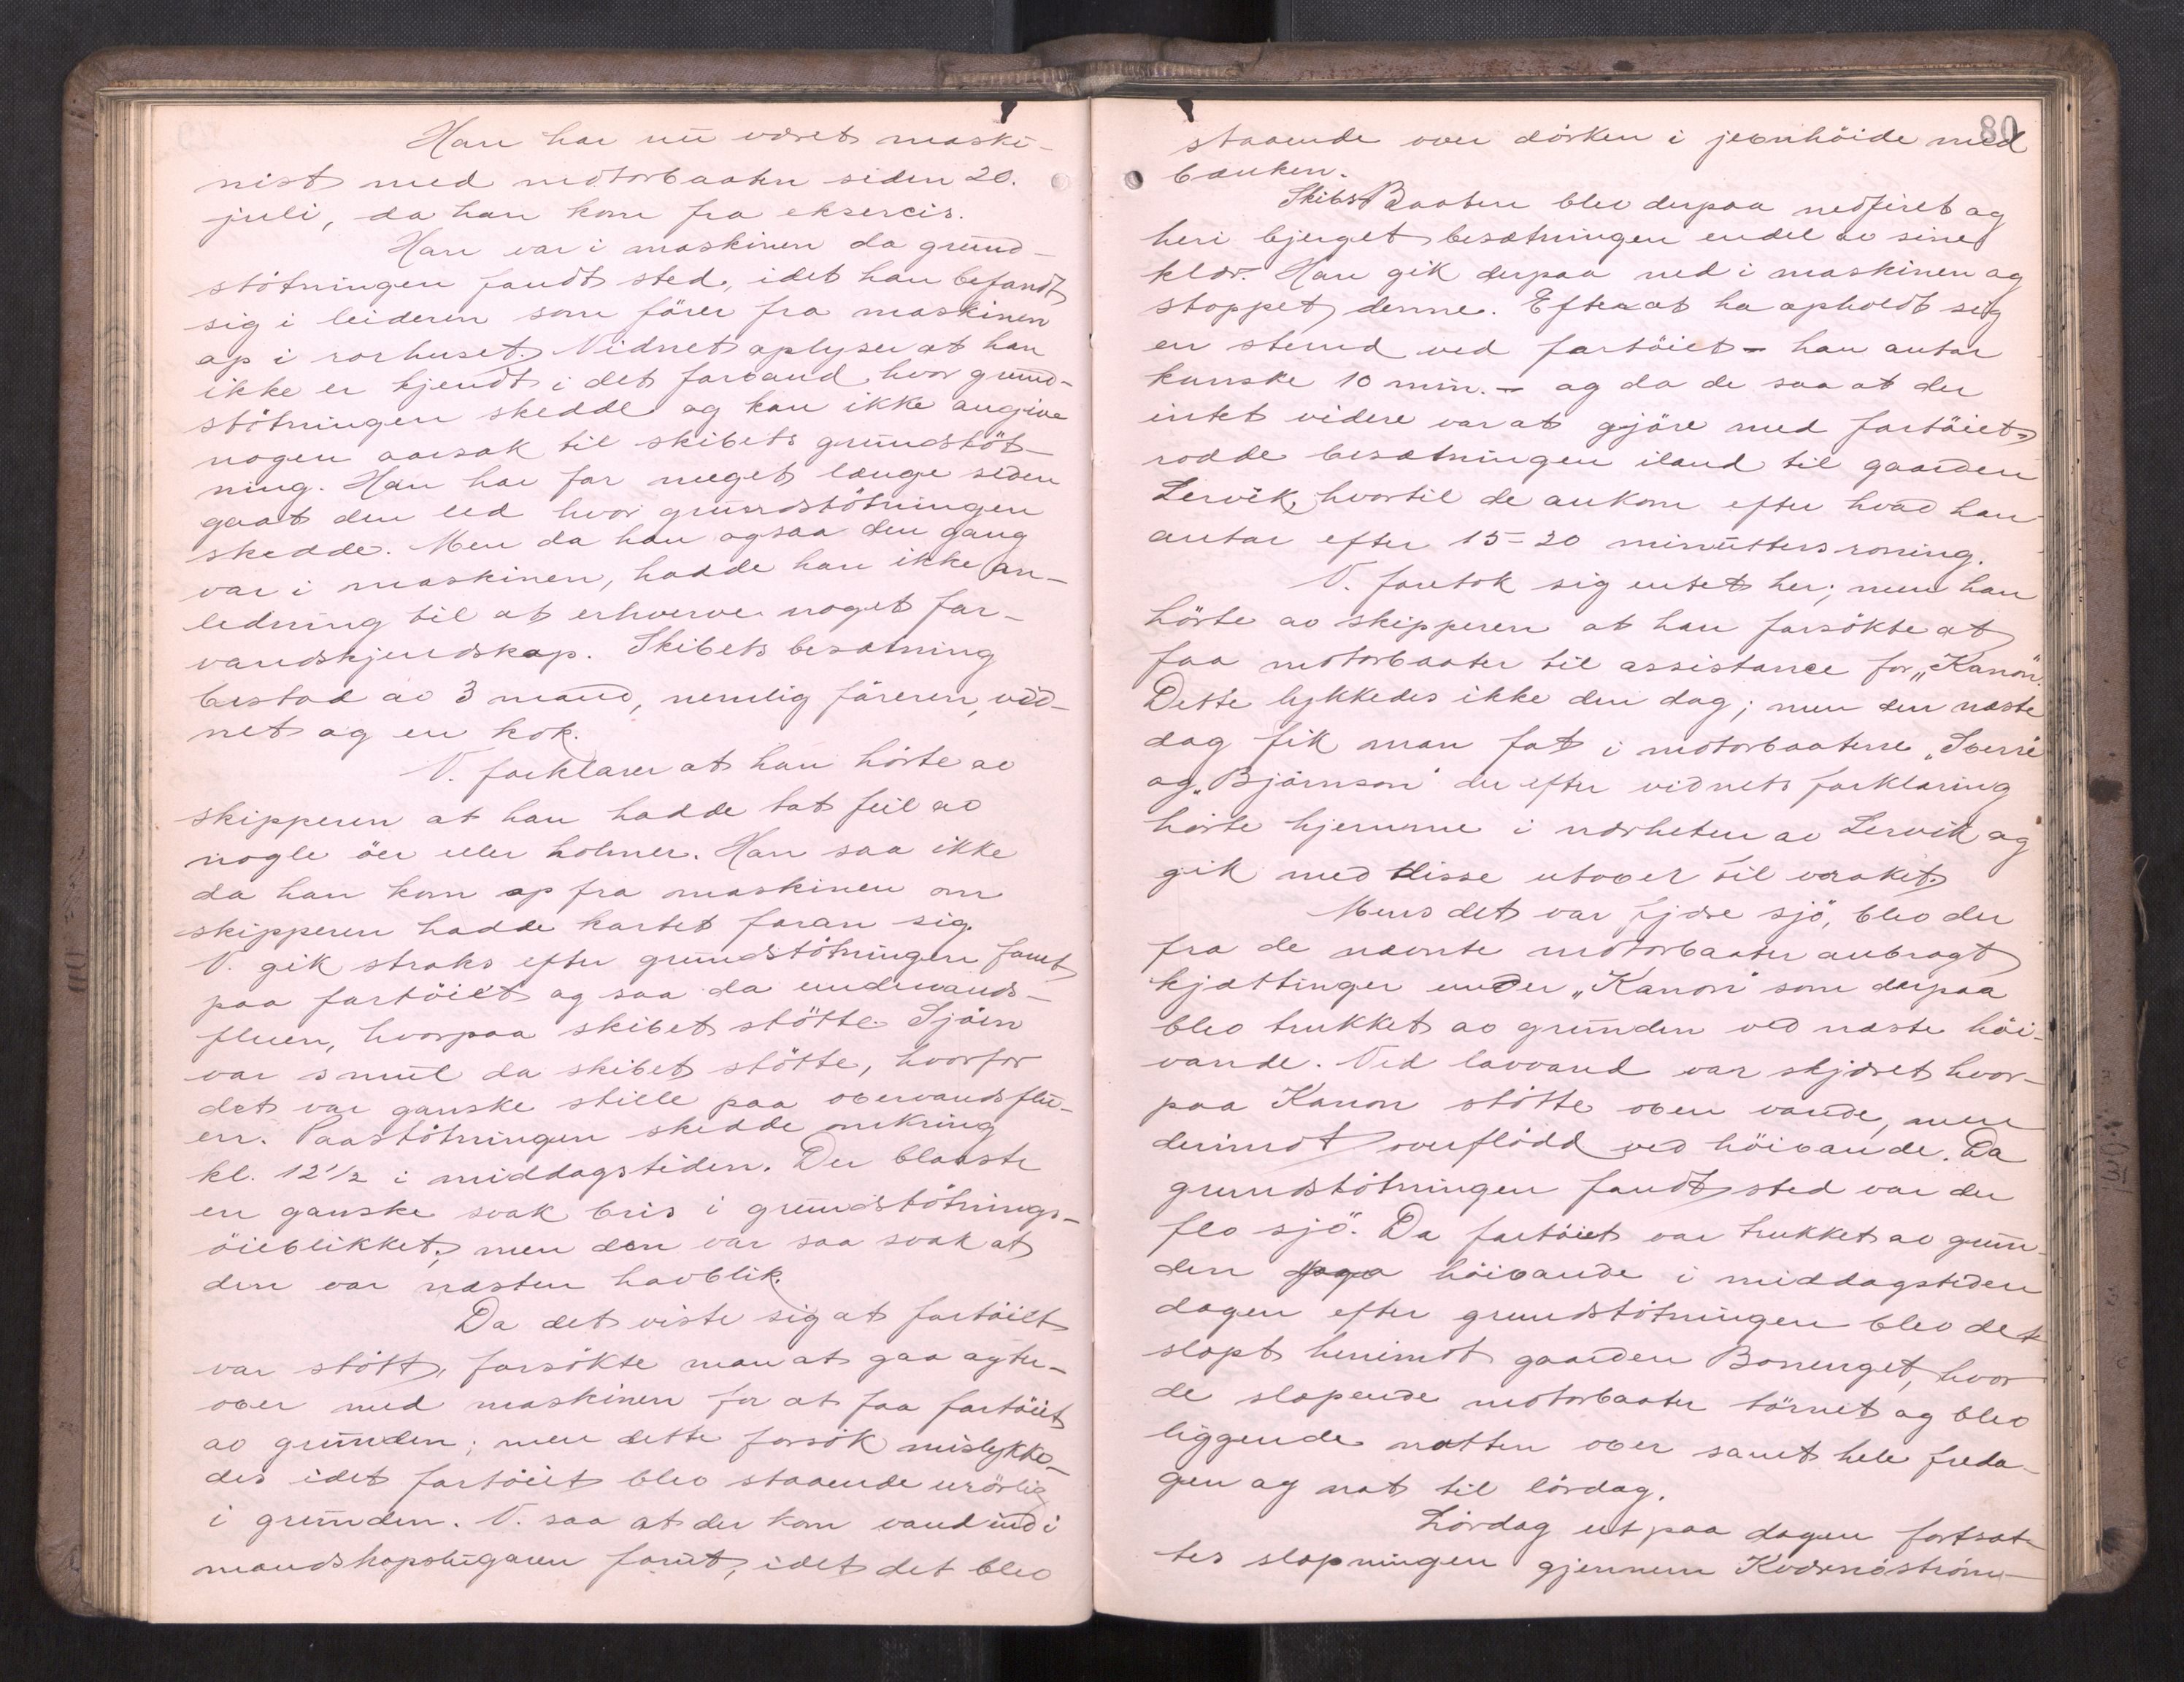 Han har nu været maski-
nist med motorbaaten siden 20.
juli, da han kom fra eksercis.
Han var i maskinen da grund-
stötningen fandt sted, idet han befandt
sig i leideren som förer fra maskinen
op i rorhuset. Vidnet oplyser at han
ikke er kjendt i det farvand hvor grund-
stötningen skedde og kan ikke angive
nogen aarsak til skibets grundstöt-
ning. Han har for meget længe siden
gaat den led hvor grundstötningen
skedde. Men da han ogsaa den gang
var i maskinen, hadde han ikke an-
ledning til at erhverve noget far-
vandskjendskap. Skibets besætning
bestod av 3 mand, nemlig föreren, vid-
net og en kok.
V. forklarer at han hörte av
skipperen at han hadde tat feil av
nogle öer eller holmer. Han saa ikke
da han kom op fra maskinen om
skipperen hadde kartet foran sig.
V. gik straks efter grundstötningen forut
paa fartöiet og saa da undervands-
fluen, hvorpaa skibet stötte. Sjöen
var smul da skibet stötte, hvorfor
det var ganske stille paa overvandsflu-
en. Paastötningen skedde omkring
kl. 12½ i middagstiden. Der blaaste
en ganske svak bris i grundstötnings-
öieblikket, men den var saa svak at
den var næsten havblik.
Da det viste sig at fartöiet
var stött, forsökte man at gaa agter-
over med maskinen for at faa fartöiet
av grunden; men dette forsök mislykke-
des idet fartöiet blev staaende urörlig
i grunden. V. saa at der kom vand ind i
mandskapslugaren forut, idet det blev
80
staaende over dörken i jevnhöide med
bænken.
Skibs Baaten blev derpaa nedfiret og
heri bjerget besætningen endel av sine
klær. Han gik derpaa ned i maskinen og
stoppet denne. Efter at ha opholdt sig
en stund ved fartöiet - han antar
kanske 10 min. - og da de saa at der
intet videre var at gjöre med fartöiet,
rodde besætningen iland til gaarden
Lervik, hvortil de ankom efter hvad han
antar efter 15-20 minutters roning.
V. foretok sig intet her; men han
hörte av skipperen at han forsökte at
faa motorbaater til assistance for „Kanon".
Dette lykkedes ikke den dag; men den næste
dag fik man fat i motorbaatene „Sverre"
og „Björnson" der efter vidnets forklaring
hörte hjemme i nærheten av Lervik og
gik med disse utover til vraket.
Mens det var fjære sjö, blev der
fra de nævnte motorbaater anbragt
kjættinger under „Kanon" som derpaa
blev trukket av grunden ved næste höi-
vande. Ved lavvand var skjæret hvor-
paa Kanon stötte over vande, men
derimot overflödd ved höivande. Da
grundstötningen fandt sted var der
flo sjö. Da fartöiet var trukket av grun-
den höivande i middagstiden
dagen efter grundstötningen blev det
slæpt henimot gaarden Bonenget, hvor
de slæpende motorbaater törnet og blev
liggende natten over samt hele freda-
gen og nat til lördag.
Lördag ut paa dagen fortsat-
tes slæpningen gjennem Kvernöström-